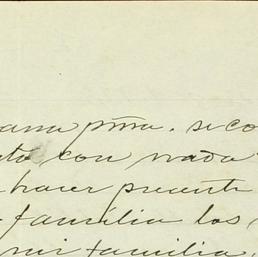 ana pma. se co
con nada
hacer presente
familia los
mi familia,